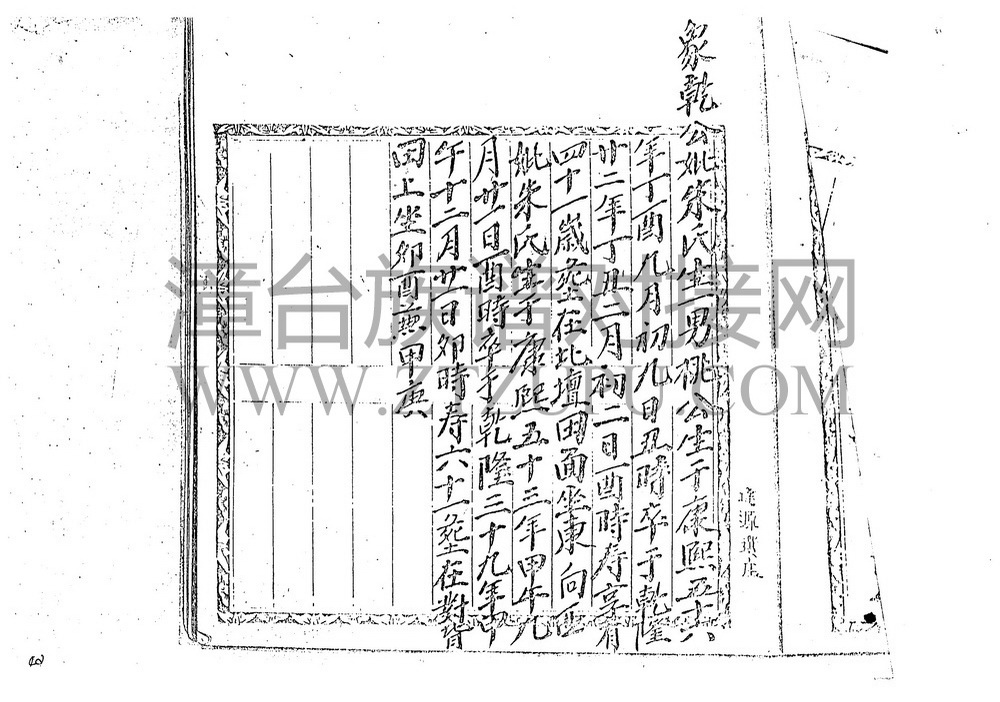 象乾公妣朱氏生一男桃公生于康熙五十六
年丁酉九月初九日丑時卒于乾隆
廿二年丁丑二月初二日酉時寿享有
四十一歲塟在北壇田面坐東向西
妣朱氏生于康熙五十三年甲午九
月廿一日酉時卒于乾隆三十九年甲
午十二月廿一日卯時寿六十一塟在對背
田上坐卯酉兼甲庚
漳台族谱对接网
WWW.ZTZUPU.COM